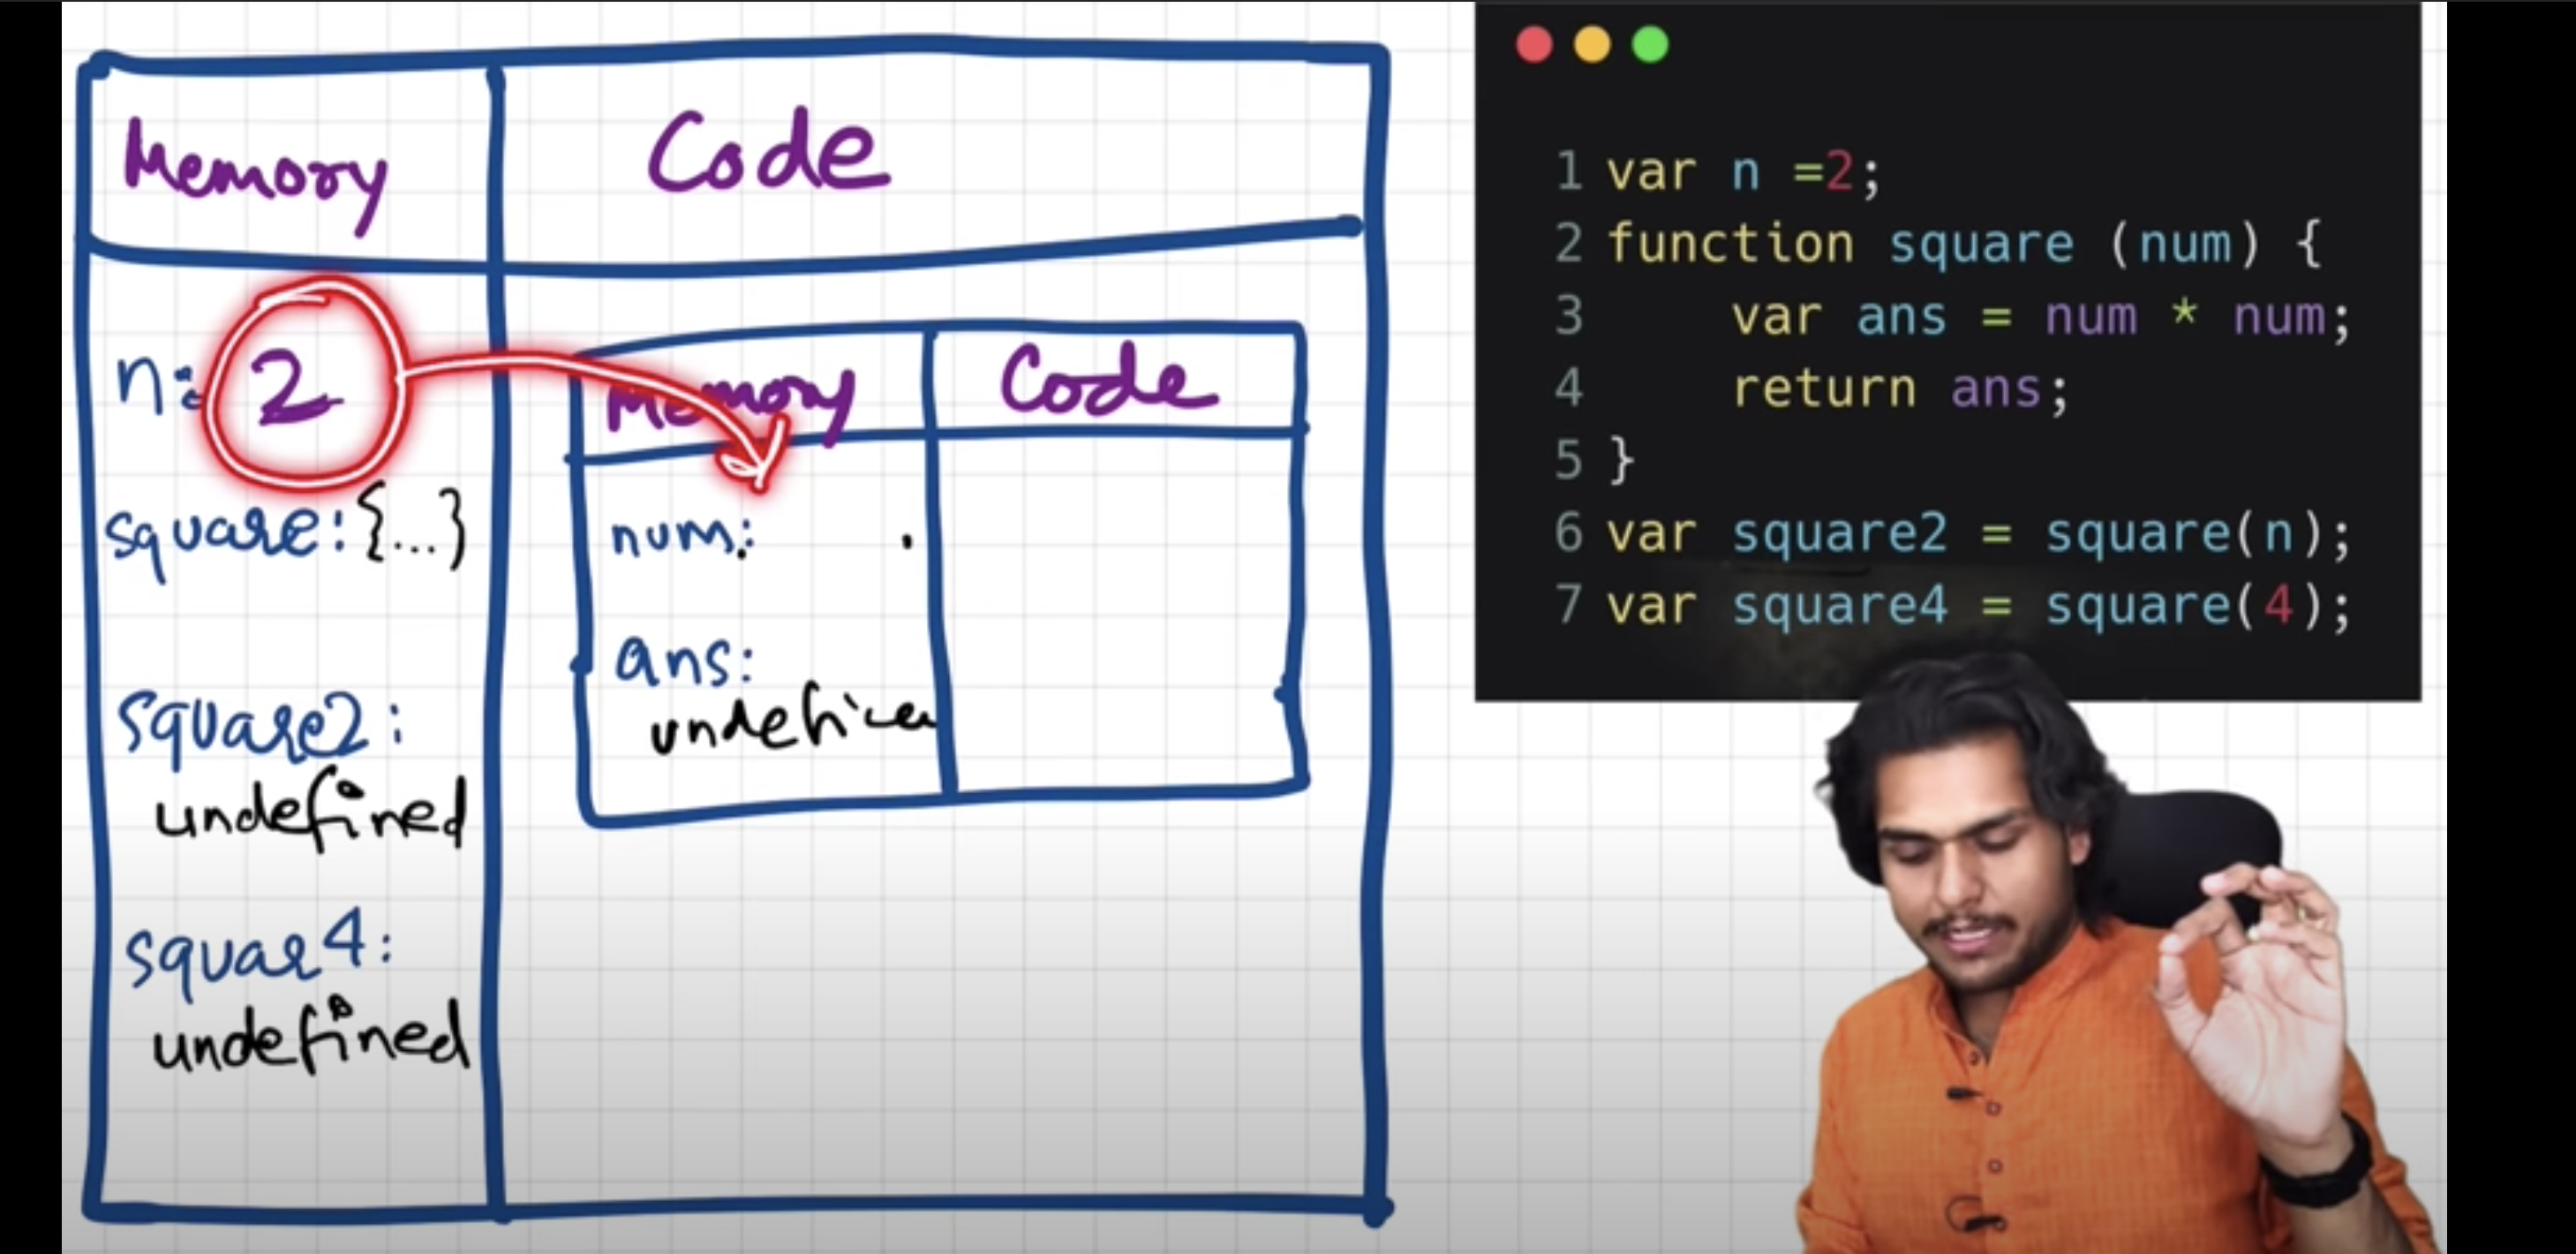 Memory
Code
n: 2
square: {...}
square2:
undefined
squar4:
undefined
Memory
Code
num:
ans:
1 var n =2;
2 function square (num) {
3 var ans = num * num;
4 return ans;
5 }
6 var square2 = square(n);
7 var square4 = square(4);